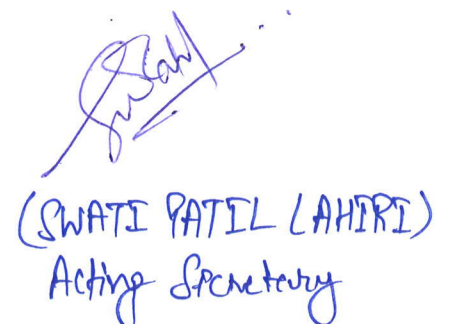 (SWATI PATIL (AHIRI)
Acting Secretary